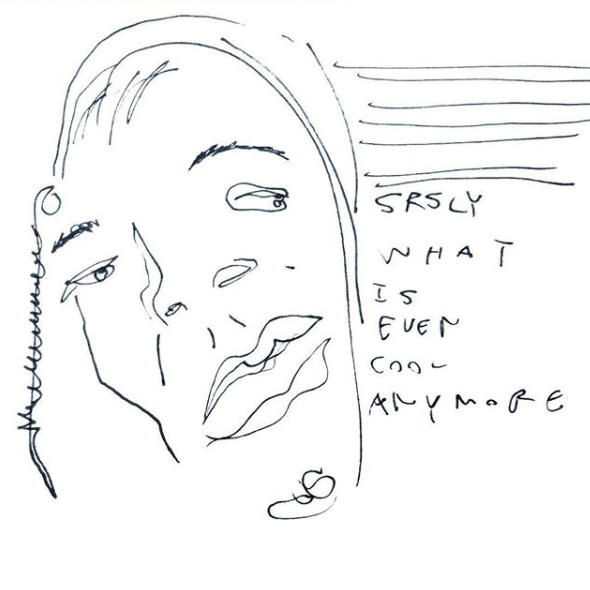 SRSLY
WHAT
IS
EVEN
COOL
ANYMORE